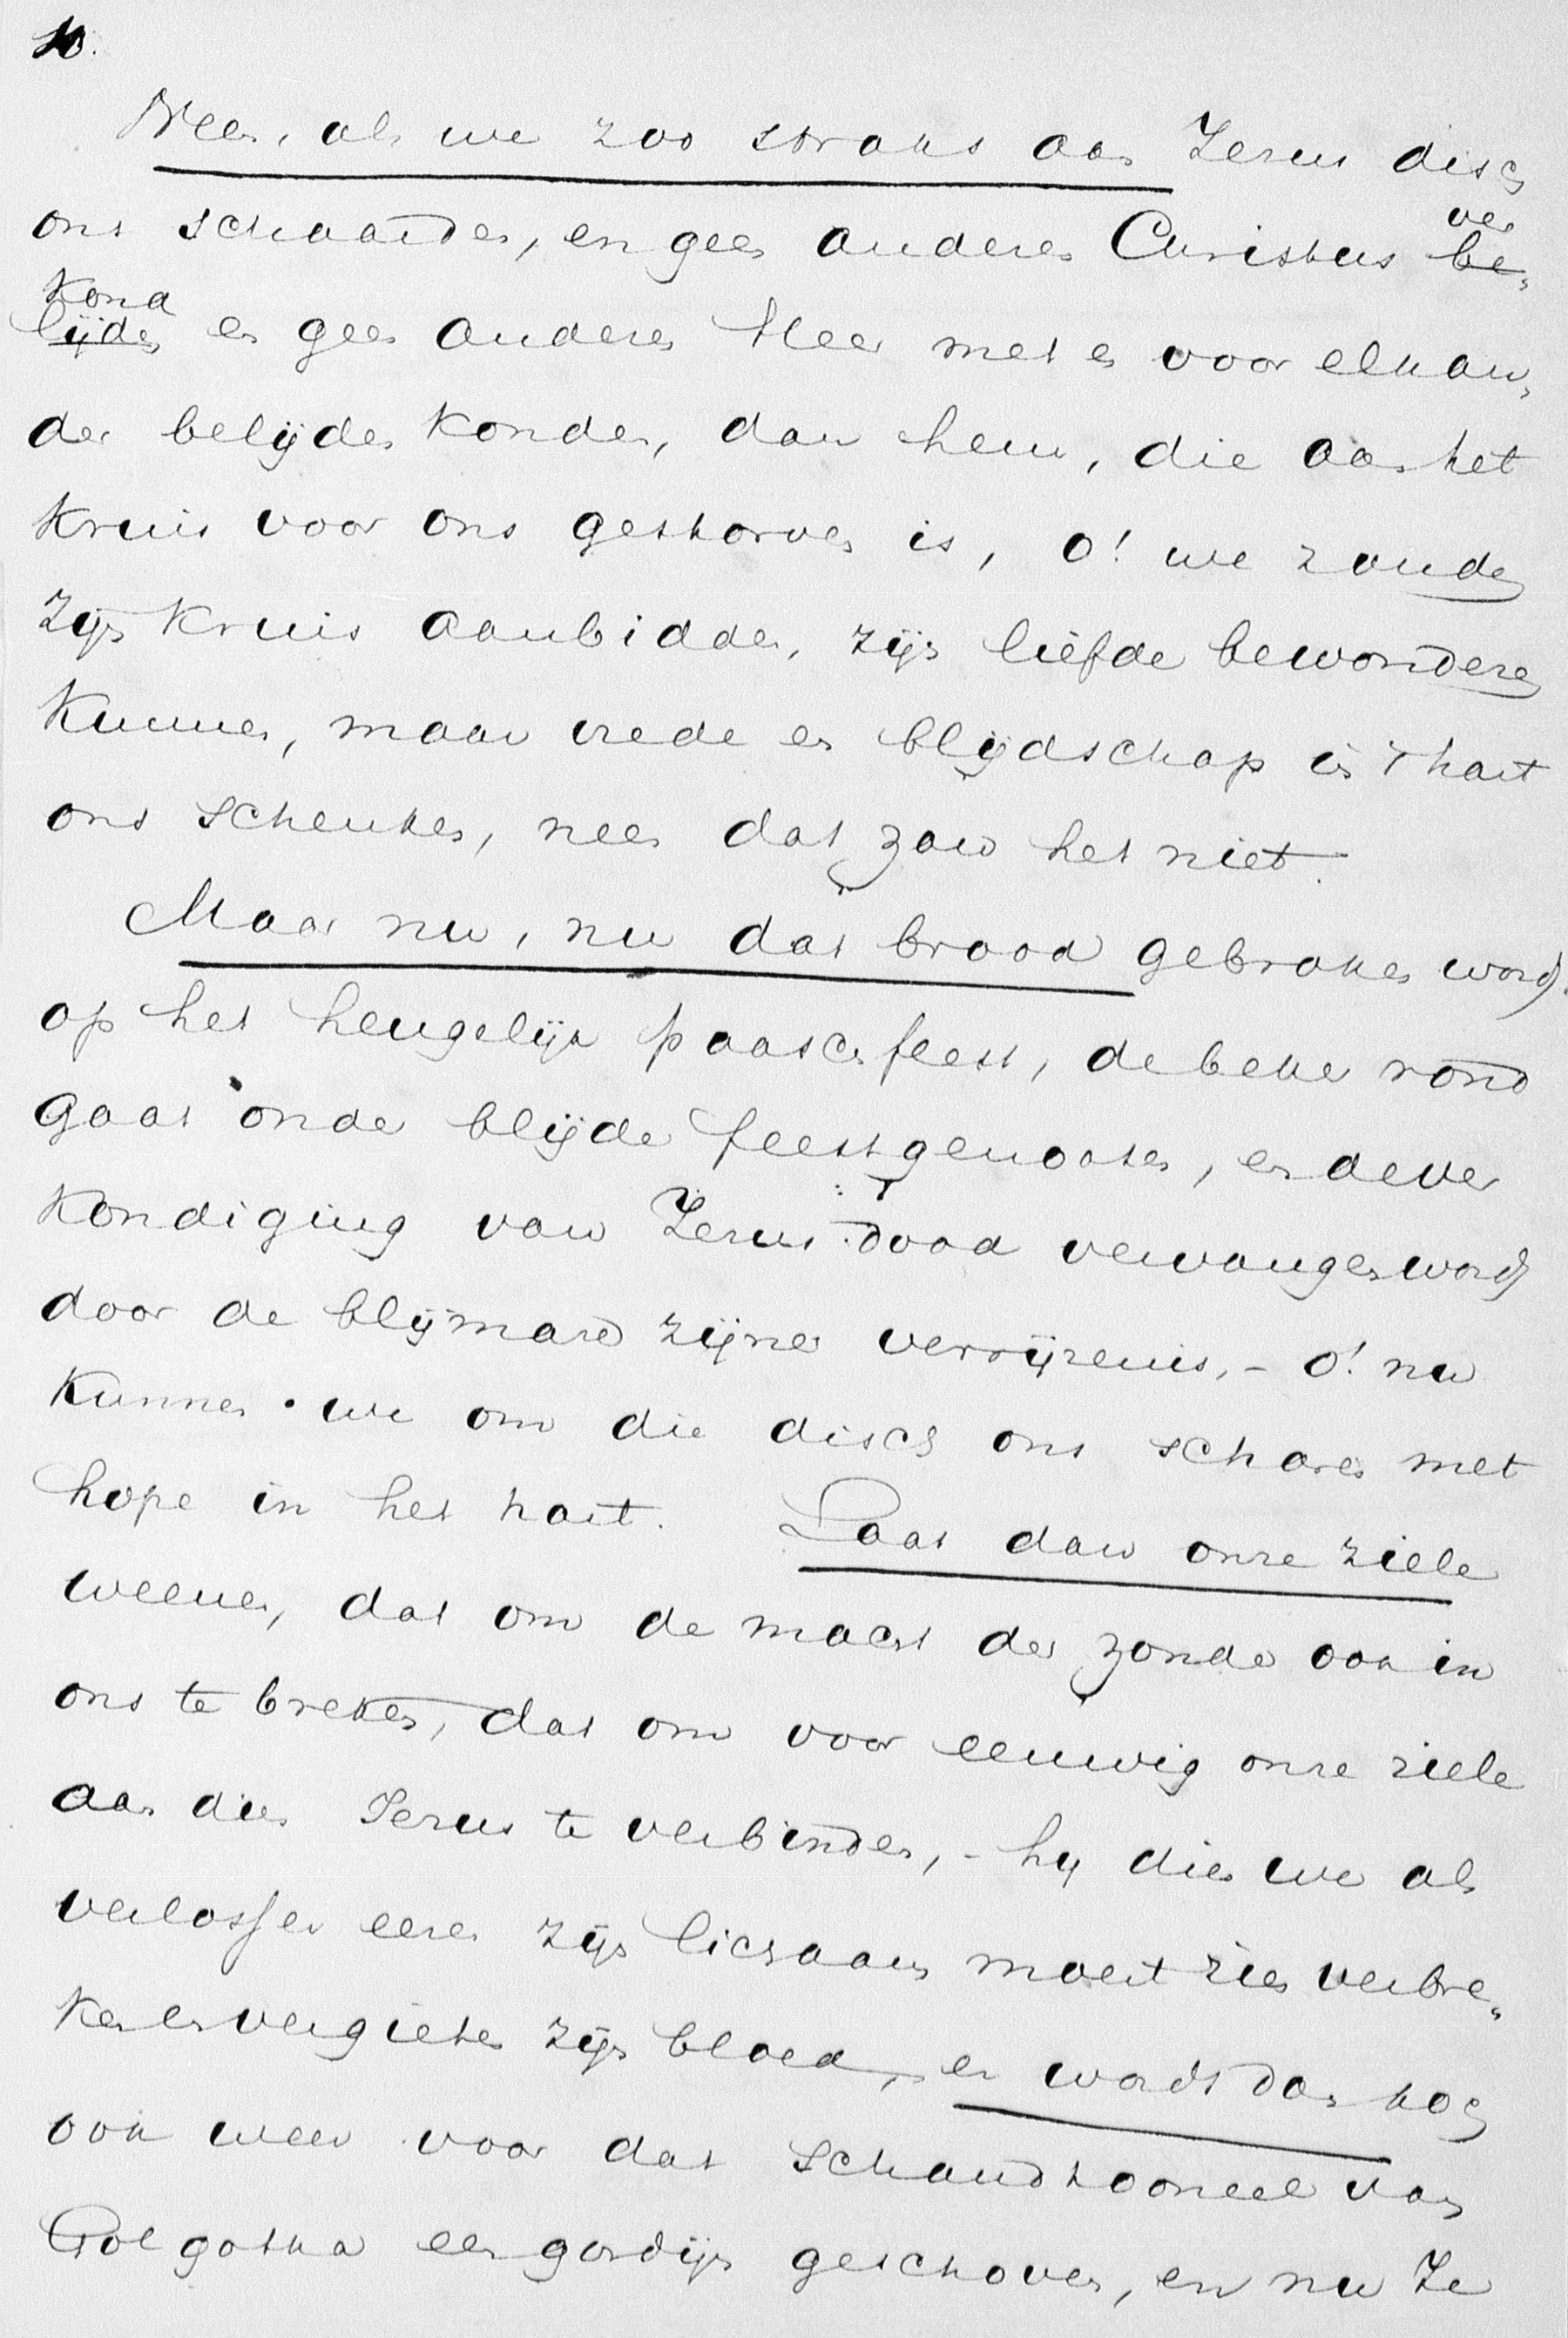 10.
Neen, als we zoo straks aan Jezus disch
ons schaarden, en geen anderen Christus be- ver
lijden kond en geen anderen Heer met en voor elkan-
der belijden konden, dan hem, die aan het
kruis voor ons gestorven is, o! we zouden
zijn kruis aanbidden, zijn liefde bewonderen
kunnen, maar vrede en blijdschap in 't hart
ons schenken, neen dat zou het niet.
Maar nu, nu dat brood gebroken wordt
op het heugelijk paaschfeest, de beker rond
gaat onder blijde feestgenooten, en de ver
kondiging van Jezus dood vervangen wordt
door de blijmare zijner verrijzenis, - o! nu
kunnen we om die disch ons scharen met
hope in het hart. Laat dan onze ziele
weenen, dat om de macht der zonde ook in
ons te breken, dat om voor eeuwig onze ziele
aan dien Jezus te verbinden, - hij dien we als
verlosser eeren zijn lichaam moest zien verbre-
ken en vergieten zijn bloed, er wordt dan toch
ook weer voor dat schandtooneel van
Golgotha een gordijn geschoven, en nu Je